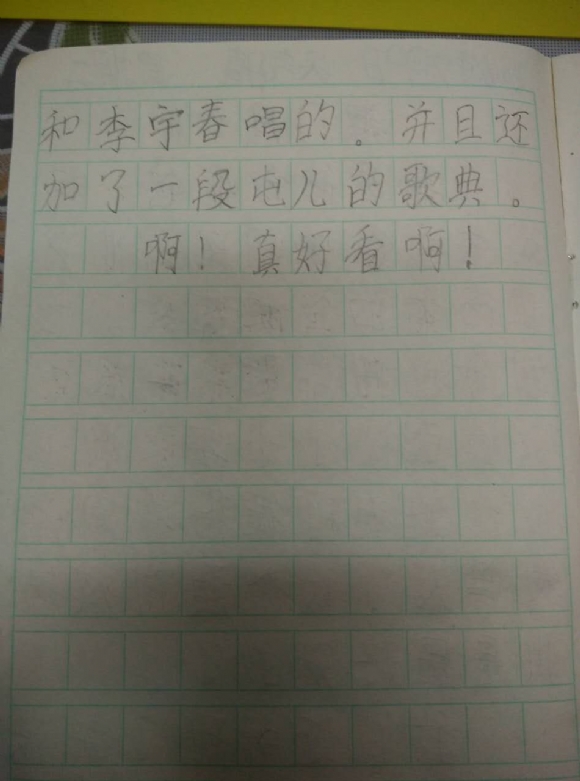 和李宇春唱的。并且还
加了一段屯儿的歌典。
啊！真好看啊！